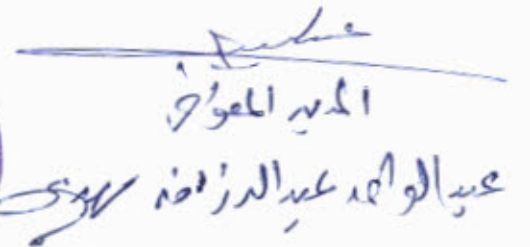 المدير المفوض
عبد الواحد عبد الرزاق